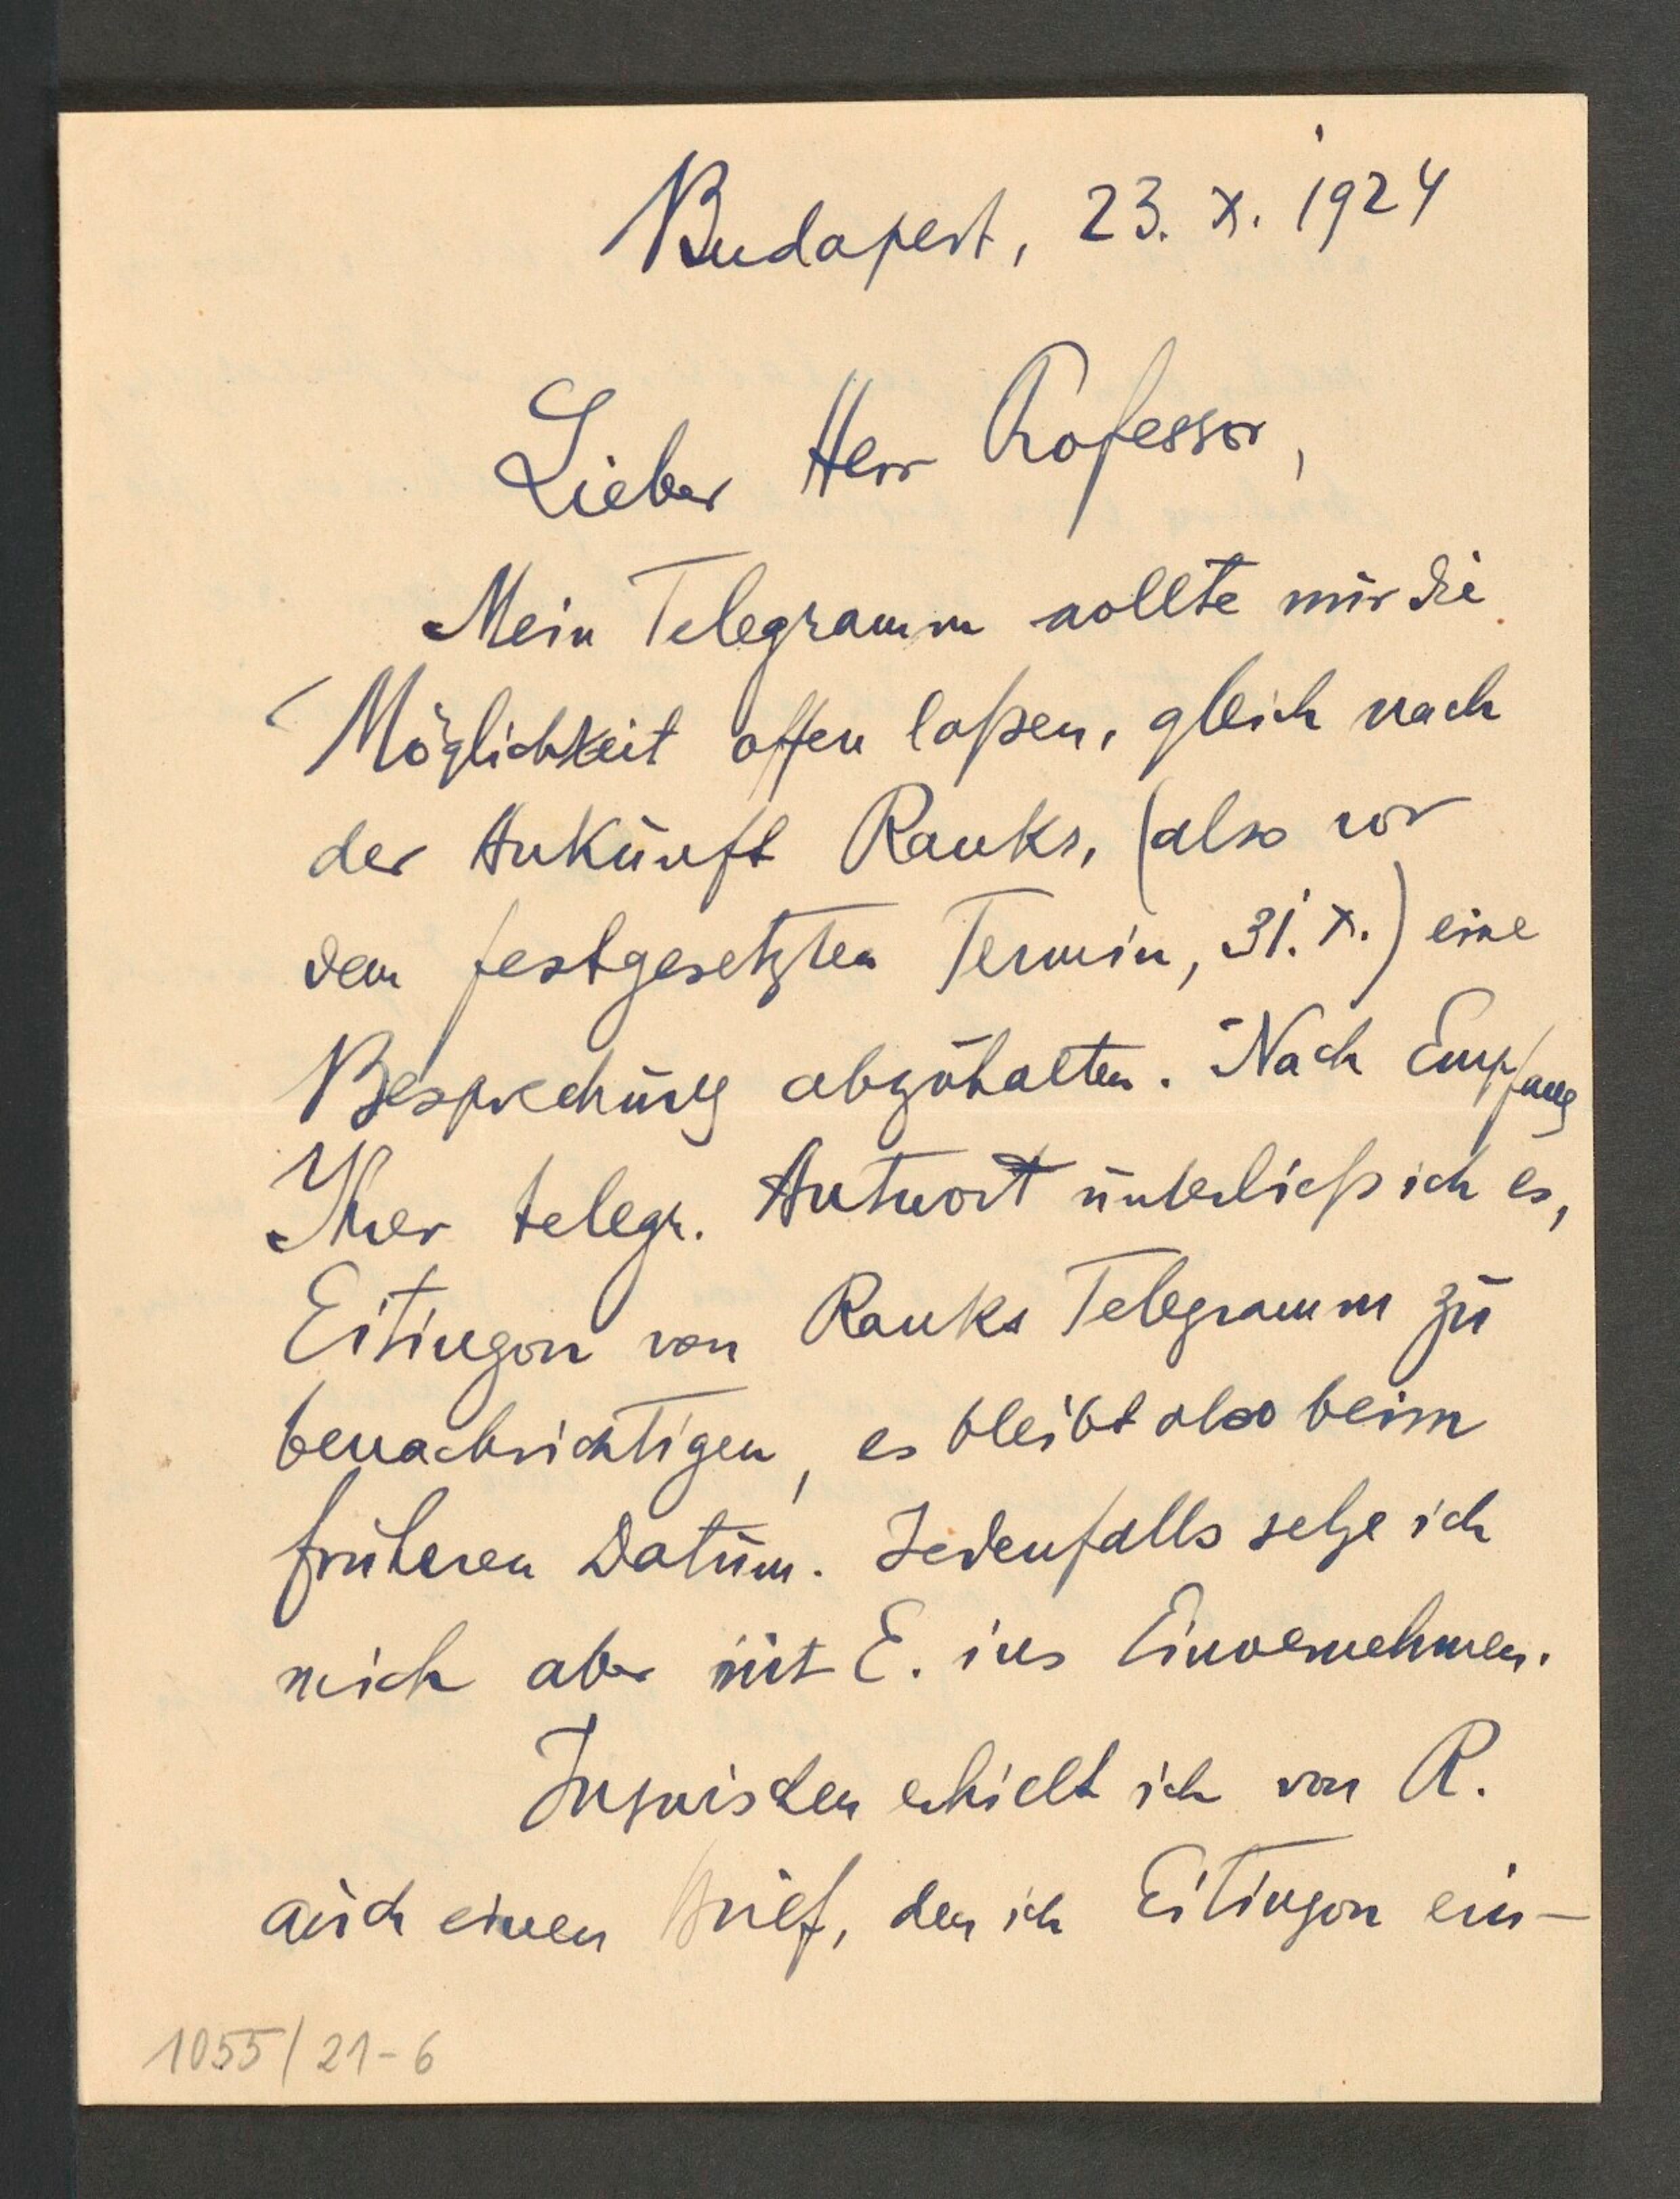 Budapest, 23. X. 1924
Lieber Herr Professor,
Mein Telegramm sollte mir die
Möglichkeit offen laßen, gleich nach
der Ankunft Ranks, (also vor
dem festgesetzten Termin, 31. X.) eine
Besprechung abzuhalten. Nach Empfang
Ihrer telegr. Antwort unterließ ich es,
Eitingon von Ranks Telegramm zu
benachrichtigen, es bleibt also beim
früheren Datum. Jedenfalls setze ich
mich aber mit E. ins Einvernehmen.
Inzwischen erhielt ich von R.
auch einen Brief, den ich Eitingon ein-
1055/21-6